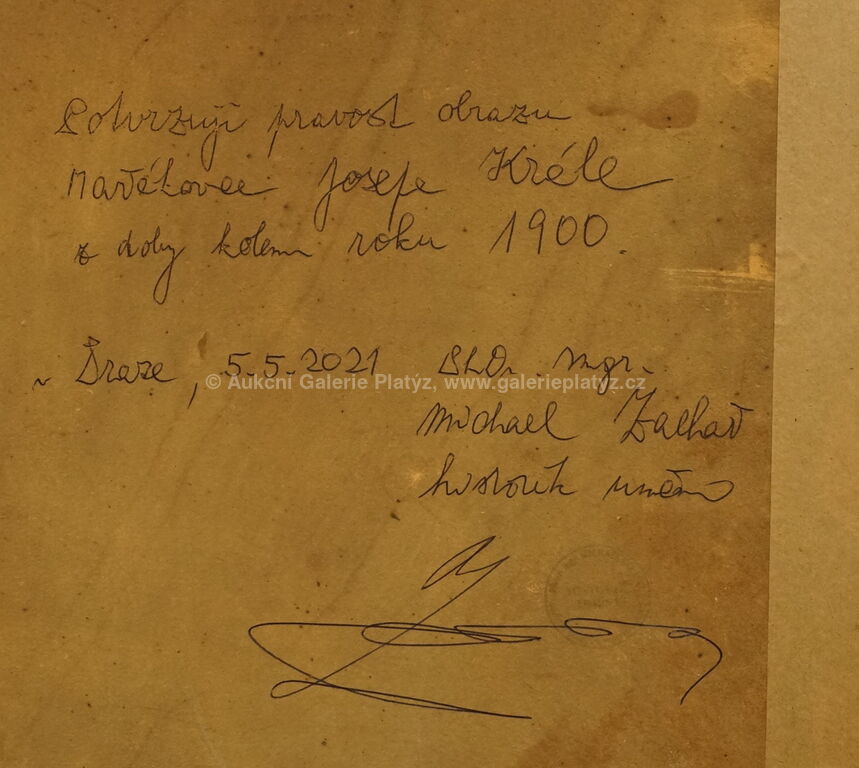 Potvrzuji pravost obrazu
Mařákovce Josefa Krále
z doby kolem roku 1900.
v Praze, 5.5.2021 PhDr. Mgr.
© Aukční Galerie Platýz, www.galerieplatyz.cz
Michael Zachař
historik umění